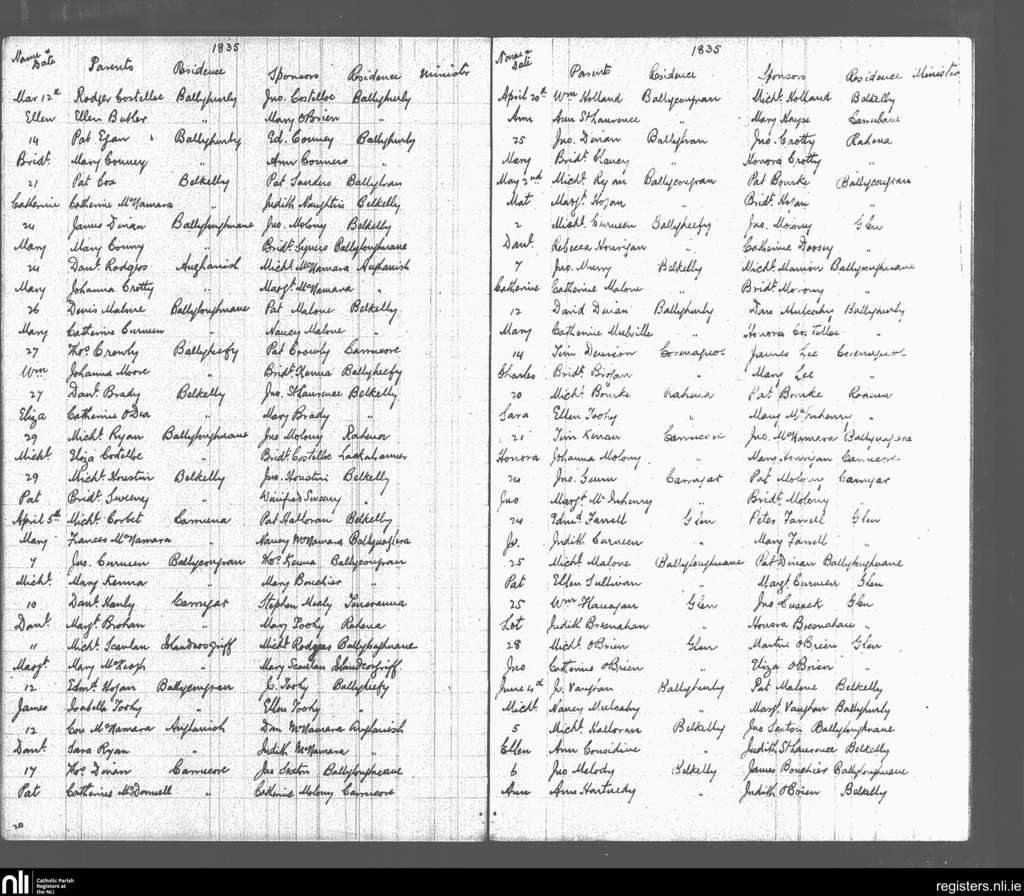 1835
Name & Date Parents Residence Sponsors Residence Minister
Mar 12th Rodger Costelloe Ballyhurly Jno. Costelloe Ballyhurly
Ellen Ellen Butler " Mary O'Brien "
14 Pat Egan Ballyhurly Ed. Conney Ballyhurly
Bridt. Mary Conney " Ann Conners "
21 Pat Cox Belkelly Pat Sanders Ballybran
Catherine Catherine McNamara " Judith Naughtin Belkelly
24 James Dinan Ballyloughnane Jno. Molony Belkelly
Mary Mary Conny " Bridt. Ballyloughnane
24 Danl. Rodgers Aughanish Michl. McNamara Aughanish
Mary Johanna Crotty " Margt. McNamara "
26 Denis Malone Ballyloughnane Pat Malone Belkelly
Mary Catherine Curneen " Nancy Malone "
27 Thos. Crowly Ballyheefy Pat Crowly Carrucore
Wm Johanna Moore " Bridt. Kenna Ballyheefy
27 Danl. Brady Belkelly Jno. St Laurence Belkelly
Eliza Catherine O'Dea " Mary Brady "
29 Michl. Ryan Ballyloughnane Jno Molony Rahena
Michl. Eliza Costelloe " Bridt. Costelloe
29 Michl. Houstin Belkelly Jno. Houstin Belkelly
Pat Bridt. Sweeney " Winifred Sweeney "
April 5th Michl. Corbet Pat Halloran Belkelly
Mary Frances McNamara " Nancy McNamara
7 Jno. Curneen Ballycougran Thos. Kenna Ballycougran
Michl. Mary Kenna " Mary Bouchier "
10 Danl. Hanly Carrugar Stephen Mealy
Danl. Margt. Brohan " Mary Toohy Rahena
11 Michl. Scanlan Islandcosgriff Michl. Rodgers Ballyloughnane
Margt. Mary McKeogh " Mary Scanlan Islandcosgriff
12 Edmd. Hogan Ballycougran J. Toohy Ballyheefy
James Isabella Toohy " Ellen Toohy "
12 Con McNamara Aughanish Dan McNamara Aughanish
Danl. Sara Ryan " Judith McNamara "
17 Thos. Dinan Carrucore Jno Sexton Ballyloughnane
Pat Catherine McDonnell " Catherine Molony Carrucore
20
1835
Name & Date Parents Residence Sponsors Residence Minister
April 20th Wm Holland Ballycougran Michl. Holland Belkelly
Ann Ann St Laurence " Mary Hayse
25 Jno. Dinan Ballybran Jno. Crotty Rahena
Mary Bridt. Clancy " Honora Crotty "
May 2nd Michl. Ryan Ballycougran Pat Bourke Ballycougran
Mat Margt. Hogan " Bridt. Hogan "
2 Michl. Curneen Ballyheefy Jno. Morony Glen
Danl. Rebecca Hourigan " Catherine Doorey "
7 Jno. Murry Belkelly Michl. Mannion Ballyloughnane
Catherine Catherine Malone " Bridt. Morony "
12 David Dinan Ballyhurly Dan Mulcahy Ballyhurly
Mary Catherine Mulville " Honora Costelloe "
14 Tim Denison James Lee
Charles Bridt. Brogan " Mary Lee "
20 Michl. Bourke Rahena Pat Bourke Rahena
Sara Ellen Toohy " Mary McInherny "
21 Tim Kenan Carrucore Jno. McNamara
Honora Johanna Molony " Mary Hourigan Carrucore
24 Jno. Gunn Carrugar Pat Molony Carrugar
Jno Margt. McInherny " Bridt. Molony "
24 Edmd. Farrell Glen Peter Farrell Glen
Jo. Judith Curneen " Mary Farrell "
25 Michl. Malone Ballyloughnane Pat Dinan Ballyloughnane
Pat Ellen Sullivan " Margt Curneen Glen
25 Wm Flanagan Glen Jno Cusack Glen
Lot Judith Bresnahan " Honora Bresnahan "
28 Michl. O'Brien Glen Martin O'Brien Glen
Jno Catherine O'Brien " Eliza O'Brien "
June 4th Jo. Vaughan Ballyhurly Pat Malone Belkelly
Michl. Nancy Mulcahy " Margt. Vaughan Ballyhurly
5 Michl. Halloran Belkelly Jno Sexton Ballyloughnane
Ellen Ann Considine " Judith St Laurence Belkelly
6 Jno Melody Belkelly James Bouchier Ballyloughnane
Ann Ann Hartnedy " Judith O'Brien Belkelly
nli Catholic Parish Registers at the NLI
registers.nli.ie